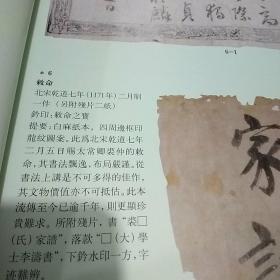 6-1
6
敕命
北宋乾道七年（1171年）二月制
一件（另附殘片二紙）
鈐印：敕命之寶
提要：白麻紙本，四周邊框印
龍紋圖案。此爲北宋乾道七年
二月五日賜太常卿裘仲的敕
命，其書法飄逸，布局嚴謹，從
書法上講是不可多得的佳作，
其文物價值亦不可抵估。此本
流傳至今已逾千年，則更顯珍
貴難求。所附殘片，書“裘□
（氏）家譜”，落款“□（大）學
士李濤書”，下鈐水印一方，字
迹難辨。
家